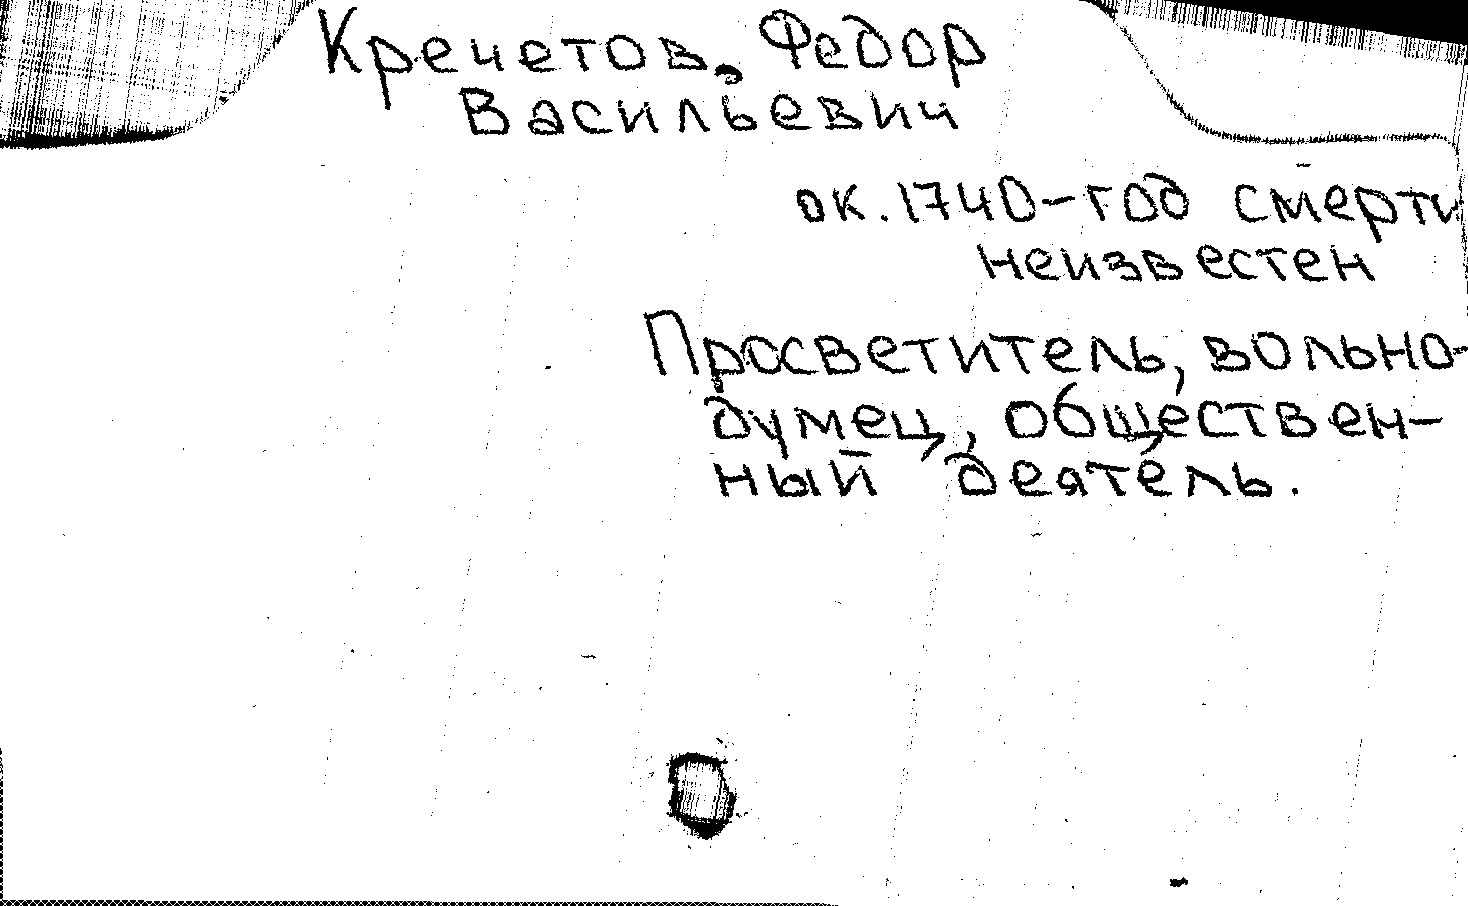 Кречетов, Федор
Васильевич
ок. 1740-год смерти
неизвестен
Просветитель, вольно-
думец, обществен-
ный деятель.